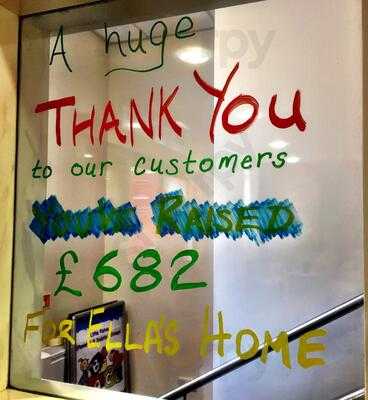 A huge
THANK YOU
to our customers
You've RAISED
£682
FOR ELLA'S HOME